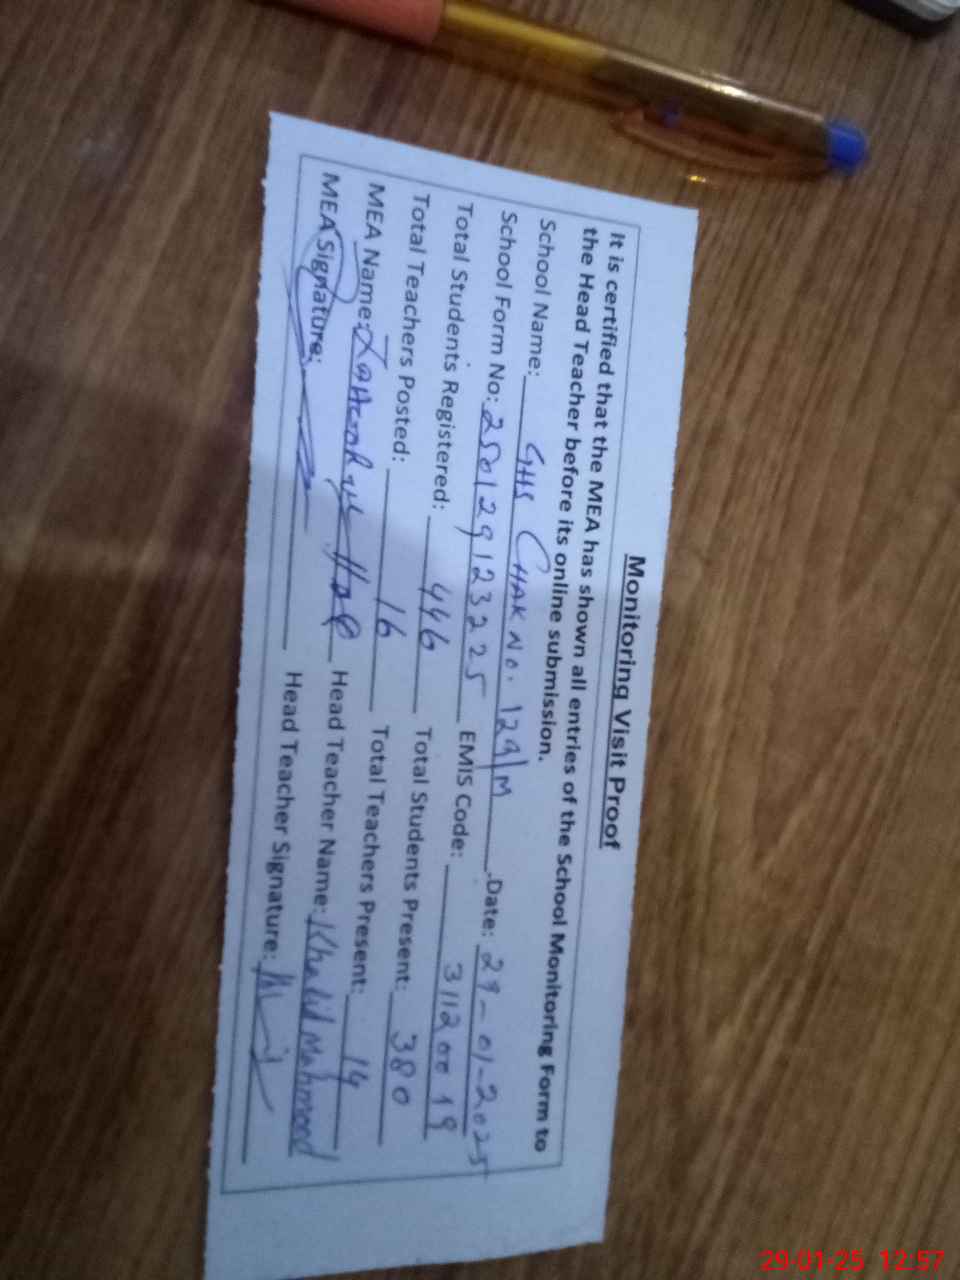 Monitoring Visit Proof
It is certified that the MEA has shown all entries of the School Monitoring Form to
the Head Teacher before its online submission.
School Name: GHS CHAK NO. 129/M Date: 29-01-2025
School Form No: 250129123225 EMIS Code: 31120019
Total Students Registered: 446 Total Students Present: 380
Total Teachers Posted: 16 Total Teachers Present: 14
MEA Name: Head Teacher Name: Khalid Mahmood
MEA Signature: Head Teacher Signature:
29-01-25 12:57